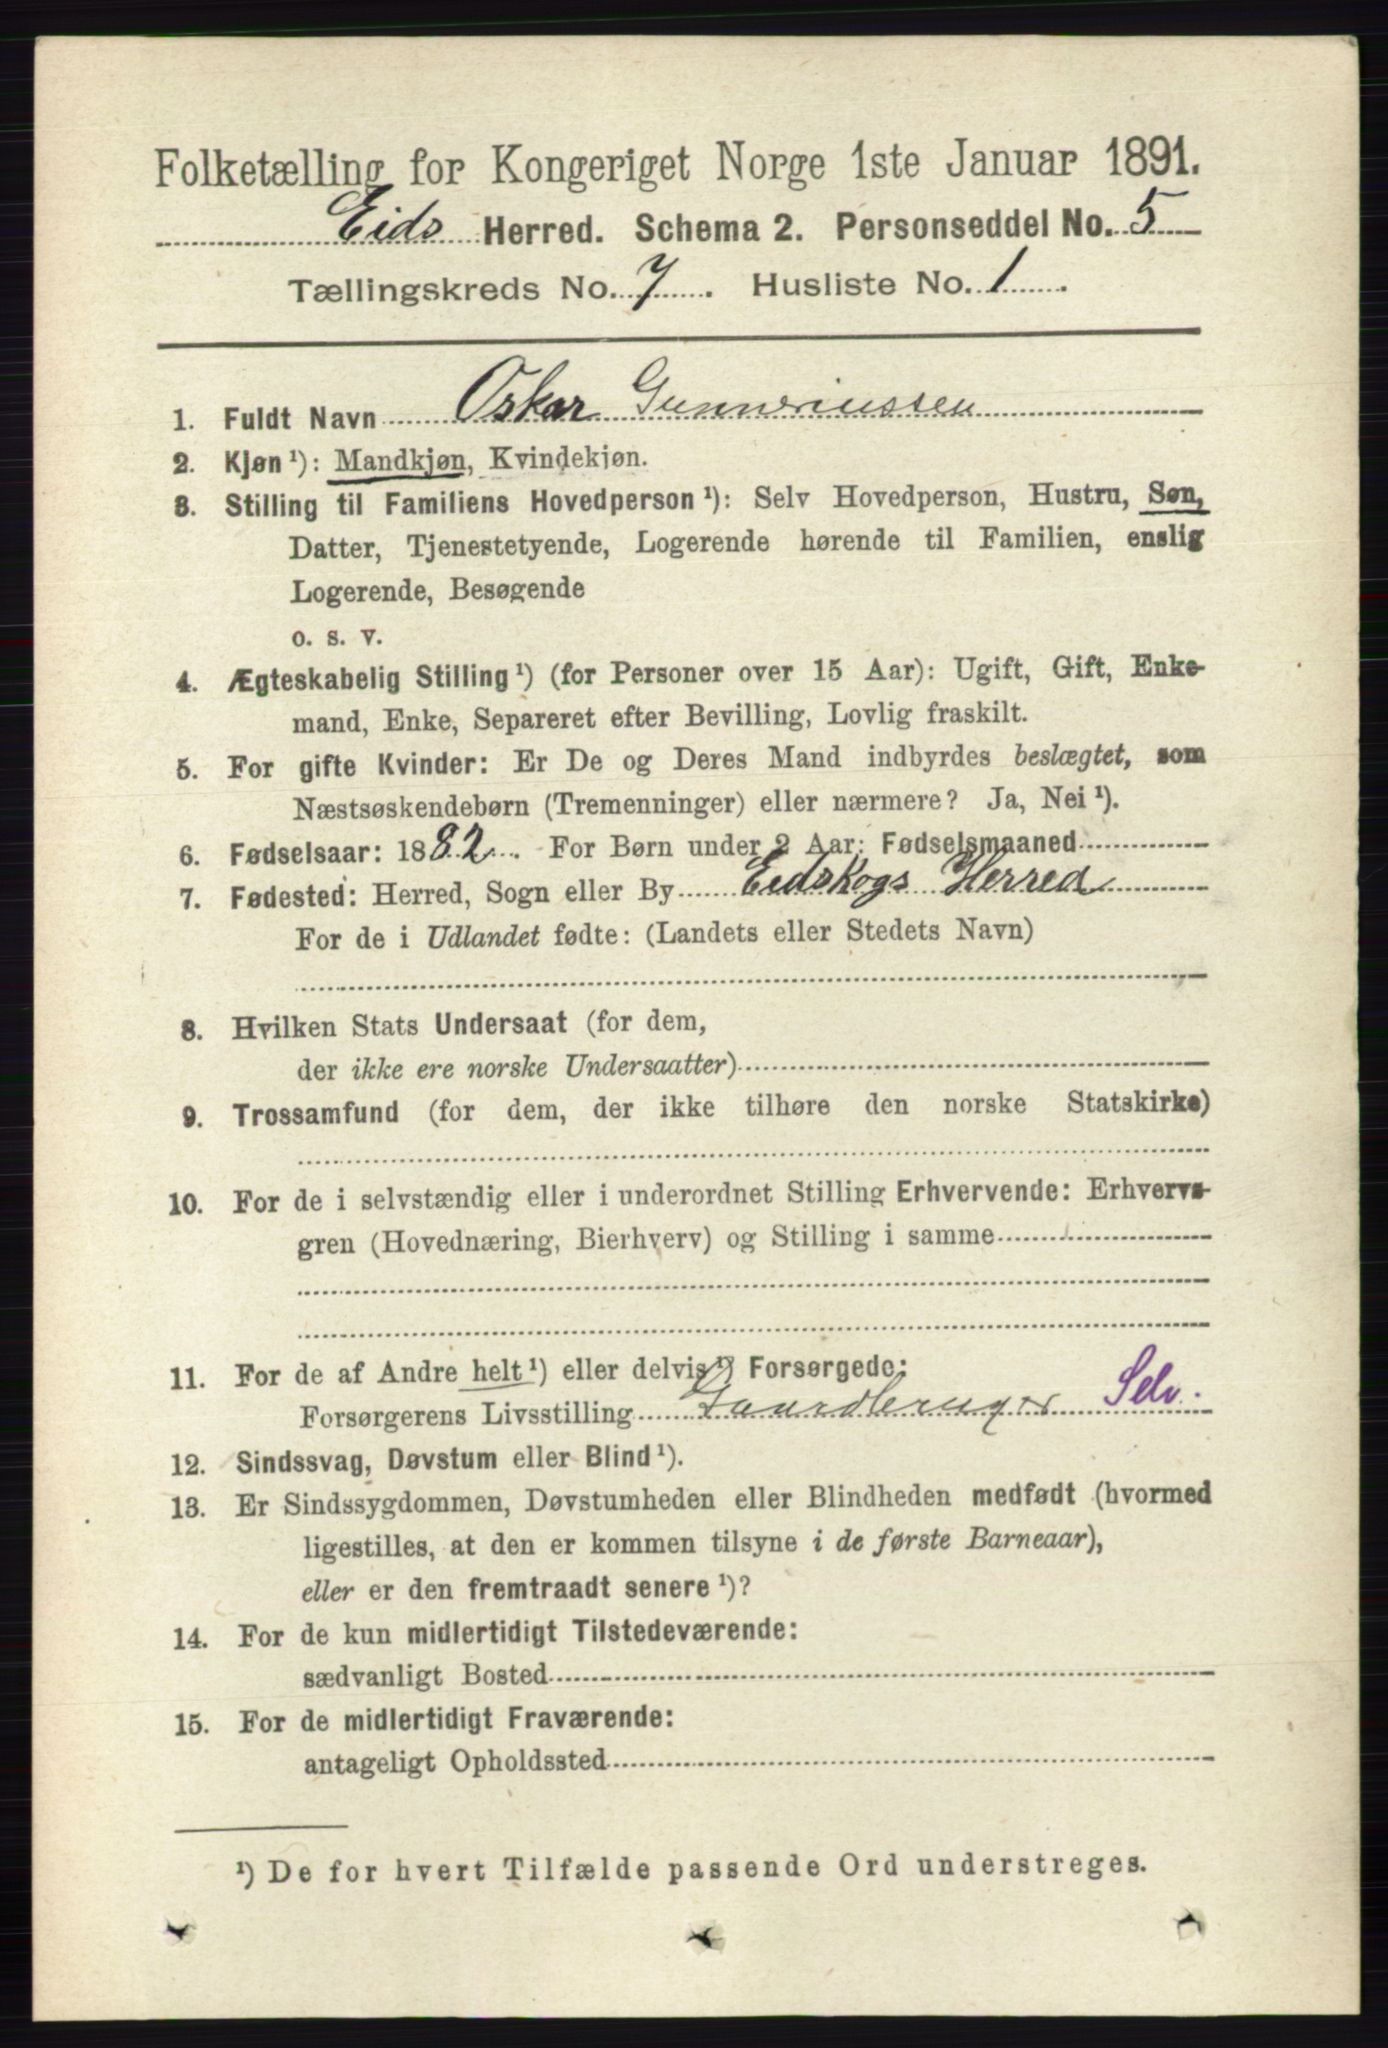 Folketælling for Kongeriget Norge 1ste Januar 1891.
Eids Herred. Schema 2. Personseddel No. 5
Tællingskreds No. 7. Husliste No. 1.
1. Fuldt Navn Oskar Gunneriussen
2. Kjøn ¹): Mandkjøn, Kvindekjøn.
3. Stilling til Familiens Hovedperson ¹): Selv Hovedperson, Hustru, Søn,
Datter, Tjenestetyende, Logerende hørende til Familien, enslig
Logerende, Besøgende
o. s. v.
4. Ægteskabelig Stilling ¹) (for Personer over 15 Aar): Ugift, Gift, Enke-
mand, Enke, Separeret efter Bevilling, Lovlig fraskilt.
5. For gifte Kvinder: Er De og Deres Mand indbyrdes beslægtet, som
Næstsøskendebørn (Tremenninger) eller nærmere? Ja, Nei ¹).
6. Fødselsaar: 1882. For Børn under 2 Aar: Fødselsmaaned
7. Fødested: Herred, Sogn eller By Eidskogs Herred
For de i Udlandet fødte: (Landets eller Stedets Navn)
8. Hvilken Stats Undersaat (for dem,
der ikke ere norske Undersaatter)
9. Trossamfund (for dem, der ikke tilhøre den norske Statskirke)
10. For de i selvstændig eller i underordnet Stilling Erhvervende: Erhvervs-
gren (Hovednæring, Bierhverv) og Stilling i samme
11. For de af Andre helt ¹) eller delvis ¹) Forsørgede:
Forsørgerens Livsstilling Gaardbruger Selv.
12. Sindssvag, Døvstum eller Blind ¹).
13. Er Sindssygdommen, Døvstumheden eller Blindheden medfødt (hvormed
ligestilles, at den er kommen tilsyne i de første Barneaar),
eller er den fremtraadt senere ¹)?
14. For de kun midlertidigt Tilstedeværende:
sædvanligt Bosted
15. For de midlertidigt Fraværende:
antageligt Opholdssted
¹) De for hvert Tilfælde passende Ord understreges.